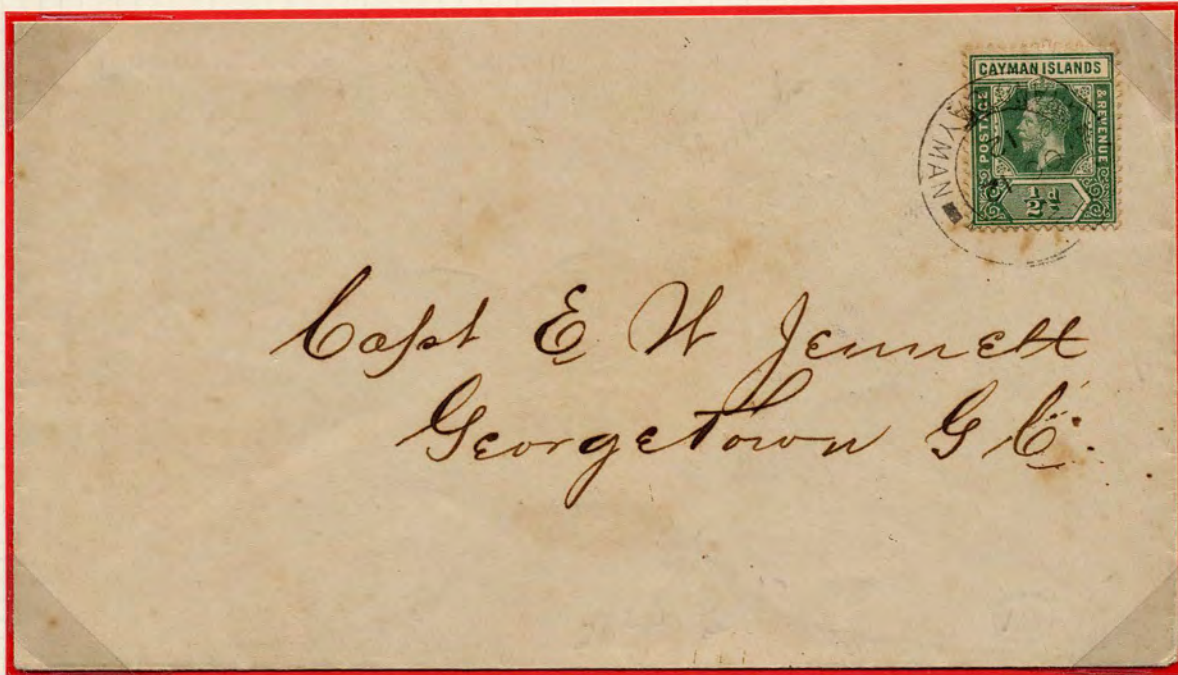 CAYMAN ISLANDS
POSTAGE & REVENUE
½d
AYMAN
Capt E W Jennett
Georgetown G C.